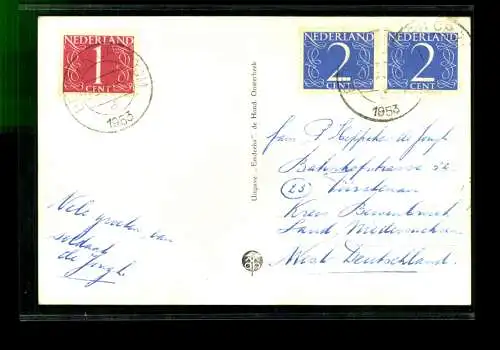 NEDERLAND
1
CENT
1953
NEDERLAND
2
CENT
NEDERLAND
2
CENT
1953
Uitgave „Enderha”, de Hond, Oosterbeek
Vele groeten van
soldaat
de Jongh.
Fam. P. de Jongh
Bahnhofstrasse
(23)
Kreis
Land, Niedersachsen
West Deutschland.